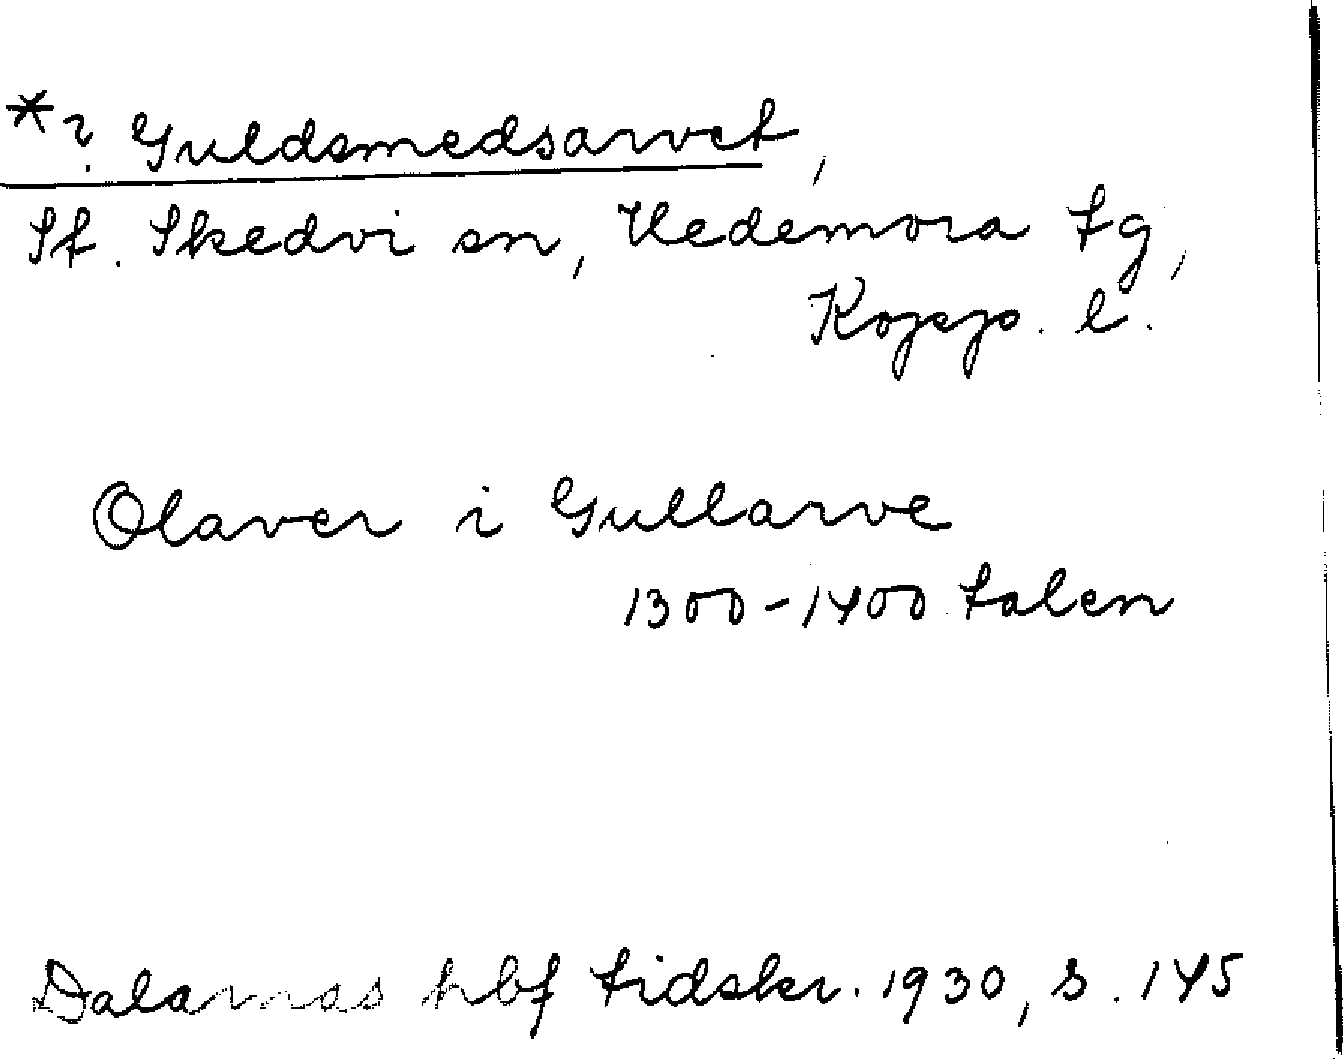 *? Guldsmedsarvet,
St. Skedvi sn, Hedemora tg,
Kopp. l.
Olaver i Gullarve
1300-1400 talen
Dalarnas hbf tidskr. 1930, s. 145